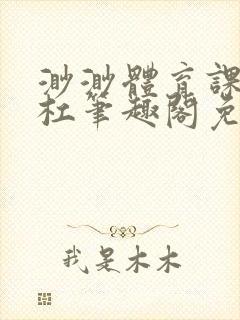 渺渺體育課
杜筆趣閣免
我是木木